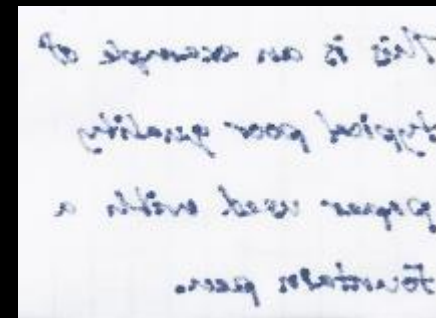 This is an example of
typical poor quality
paper used with a
fountain pen.